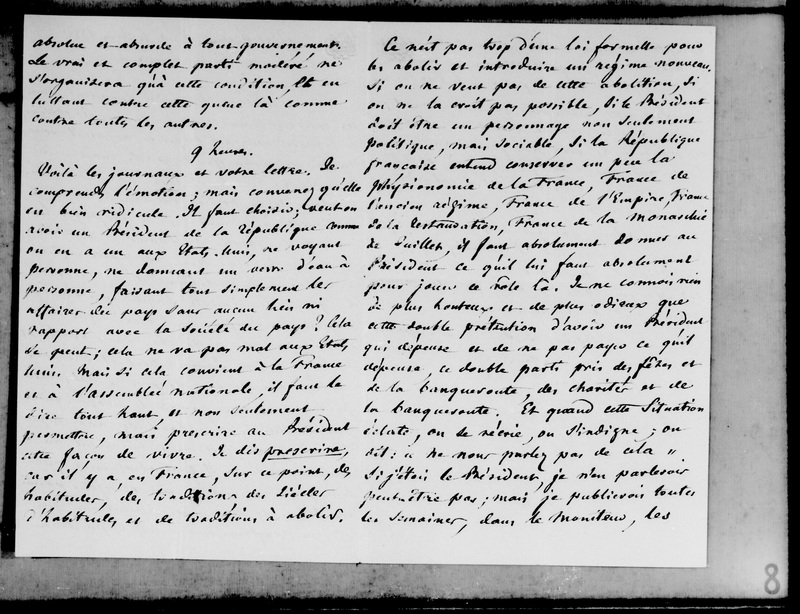 absolue et absurde à tout gouvernement.
Le vrai et complet parti modéré ne
s'organisera qu'à cette condition, et en
luttant contre cette queue là comme
contre toutes les autres.
9 heures.
Voilà les journaux et votre lettre. Je
comprends l'émotion ; mais convenez qu'elle
en bien ridicule. Il faut choisir ; veut-on
avoir un Président de la République comme
on en a un aux Etats-Unis, ne voyant
personne, ne donnant un verre d'eau à
personne, faisant tout simplement les
affaires du pays sans aucun lien ni
rapport avec la société du pays ? Cela
se peut ; cela ne va pas mal aux Etats
Unis. Mais si cela convient à la France
et à l'assemblée nationale, il faut le
dire tout haut, et non seulement
permettre, mais prescrire au Président
cette façon de vivre. Je dis prescrire,
car il y a, en France, sur ce point, des
habitudes, des traditions des Siècles
d'habitudes et de traditions à abolir.
Ce n'est pas trop d'une loi formelle pour
les abolir et introduire un régime nouveau.
Si on ne veut pas de cette abolition, si
on ne la croit pas possible, si le Président
doit être un personnage non seulement
politique, mais sociable, si la République
française entend conserver un peu la
physionomie de la France, France de
l'ancien régime, France de l'Empire, France
de la restauration, France de la monarchie
de Juillet, il faut absolument donner au
Président ce qu'il lui faut absolument
pour jouer ce rôle là. Je ne connois rien
de plus honteux et de plus odieux que
cette double prétention d'avoir un Président
qui dépense et de ne pas payer ce qu'il
dépense, ce double parti pris des fêtes et
de la banqueroute, des charités et de
la banqueroute. Et quand cette situation
éclate, on se récrie, on s'indigne ; on
dit : « ne nous parlez pas de cela »
Si j'étois le Président, je n'en parlerois
peut-être pas ; mais je publierois toutes
les semaines, dans le Moniteur, les
8